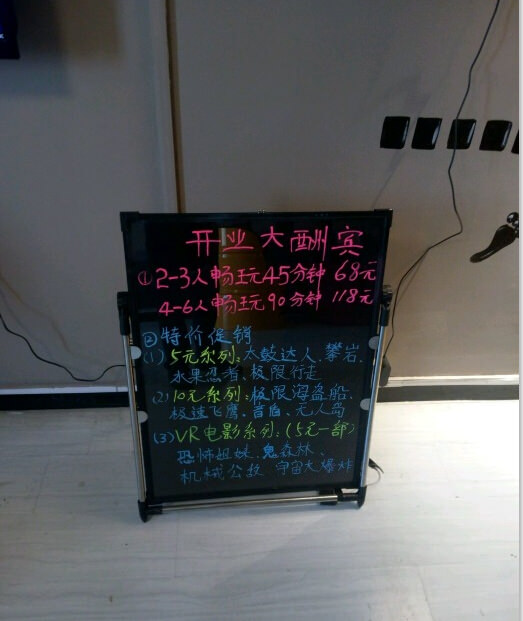 开业大酬宾
① 2-3人畅玩45分钟 68元
4-6人畅玩90分钟 118元
② 特价促销
(1) 5元系列: 太鼓达人、攀岩、
水果忍者、极限行走
(2) 10元系列: 极限海盗船、
极速飞鹰、盲盾、无人岛
(3) VR电影系列: (5元一部)
恐怖姐妹、鬼森林、
机械公敌 宇宙大爆炸